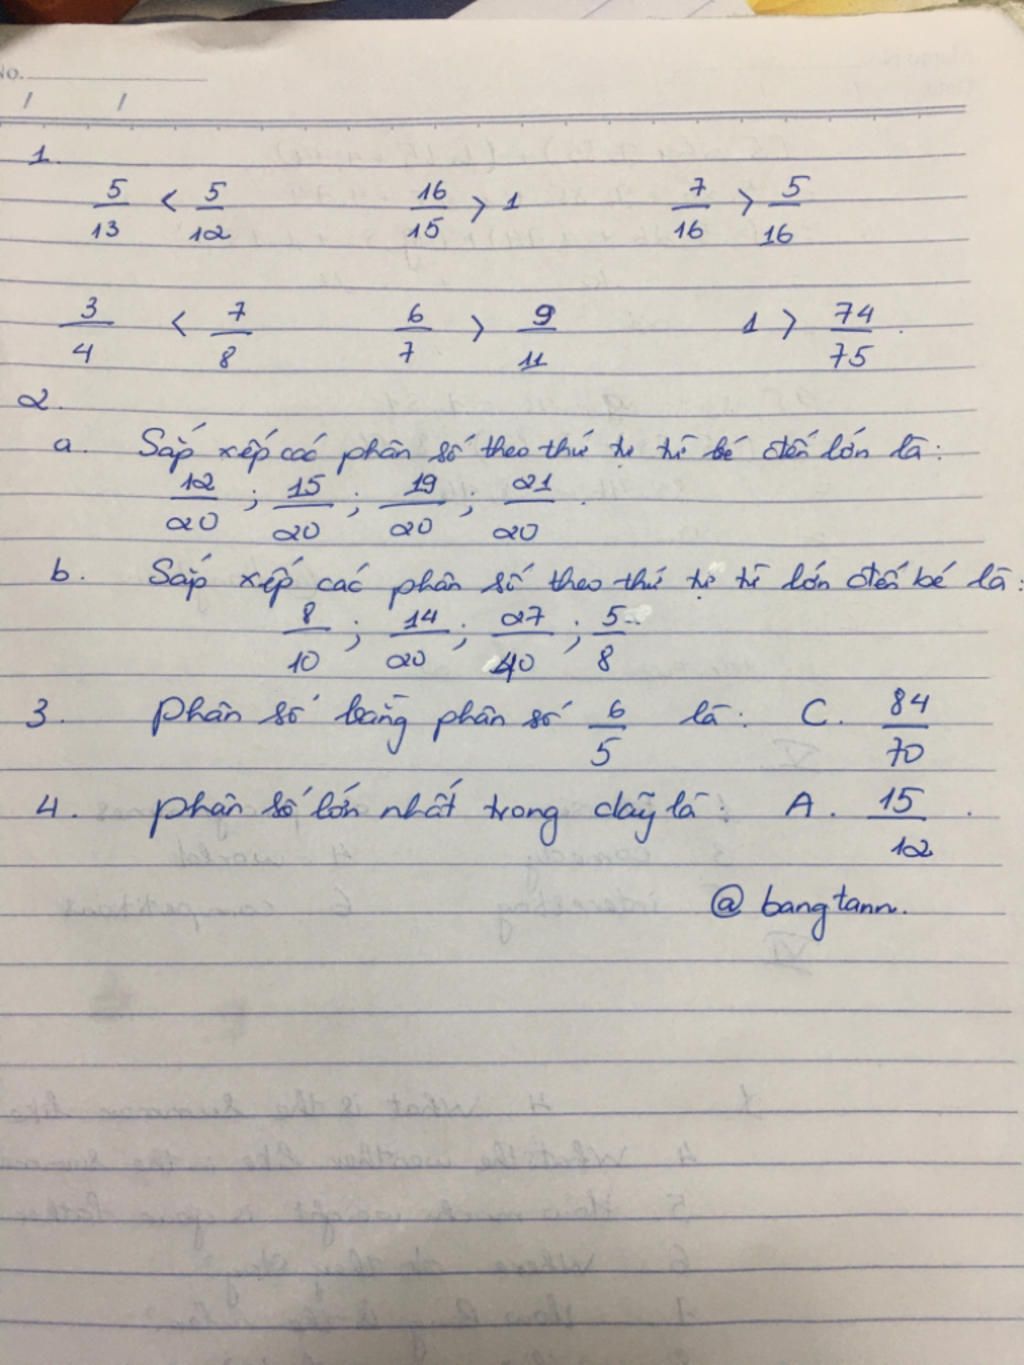 No.
/ /
1.
5/13 < 5/12 16/15 > 1 7/16 > 5/16
3/4 < 7/8 6/7 > 9/11 1 > 74/75.
2.
a. Sắp xếp các phân số theo thứ tự từ bé đến lớn là:
12/20 ; 15/20 ; 19/20 ; 21/20 .
b. Sắp xếp các phân số theo thứ tự từ lớn đến bé là:
8/10 ; 14/20 ; 27/40 ; 5/8
3. Phân số bằng phân số 6/5 là: C. 84/70
4. phân số lớn nhất trong dãy là: A. 15/12 .
@ bangtann.